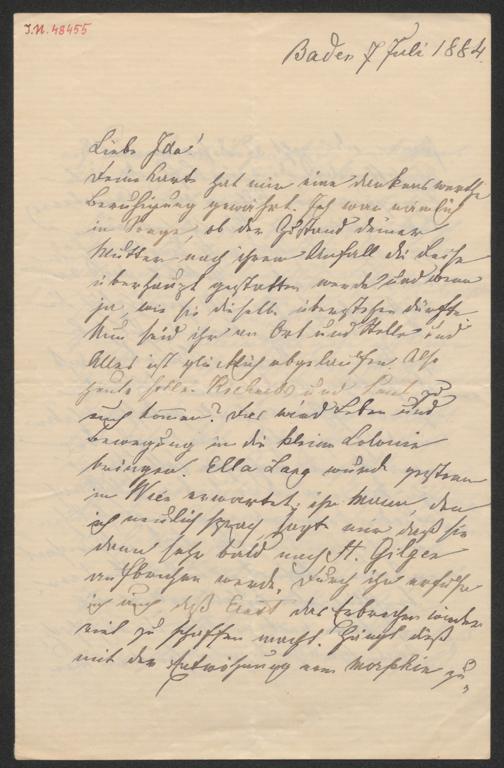 J.N. 48455
Baden 7 Juli 1884.
Liebe Ida!
Deine Karte hat mir eine dankenswerthe
Beruhigung gewährt. Ich war nämlich
in Sorge, ob der Zustand deiner
Mutter nach ihrem Anfall die Reise
überhaupt gestatten werde und wenn
ja, wie sie dieselbe überstehen dürfte.
Nun seid ihr an Ort und Stelle und
Alles ist glücklich abgelaufen. Also
heute sollen und zu
euch kommen? Das wird Leben und
Bewegung in die kleine Colonie
bringen. Ella Lang wurde gestern
in Wien erwartet; ihr Mann, den
ich neulich sprach, sagt mir daß sie
dann sehr bald nach St. Gilgen
aufbrechen werde. Durch ihn erfuhr
ich auch daß Ernst das Erbrechen wieder
viel zu schaffen macht. Hängt das
mit der Entwöhnung vom Morphin zu-